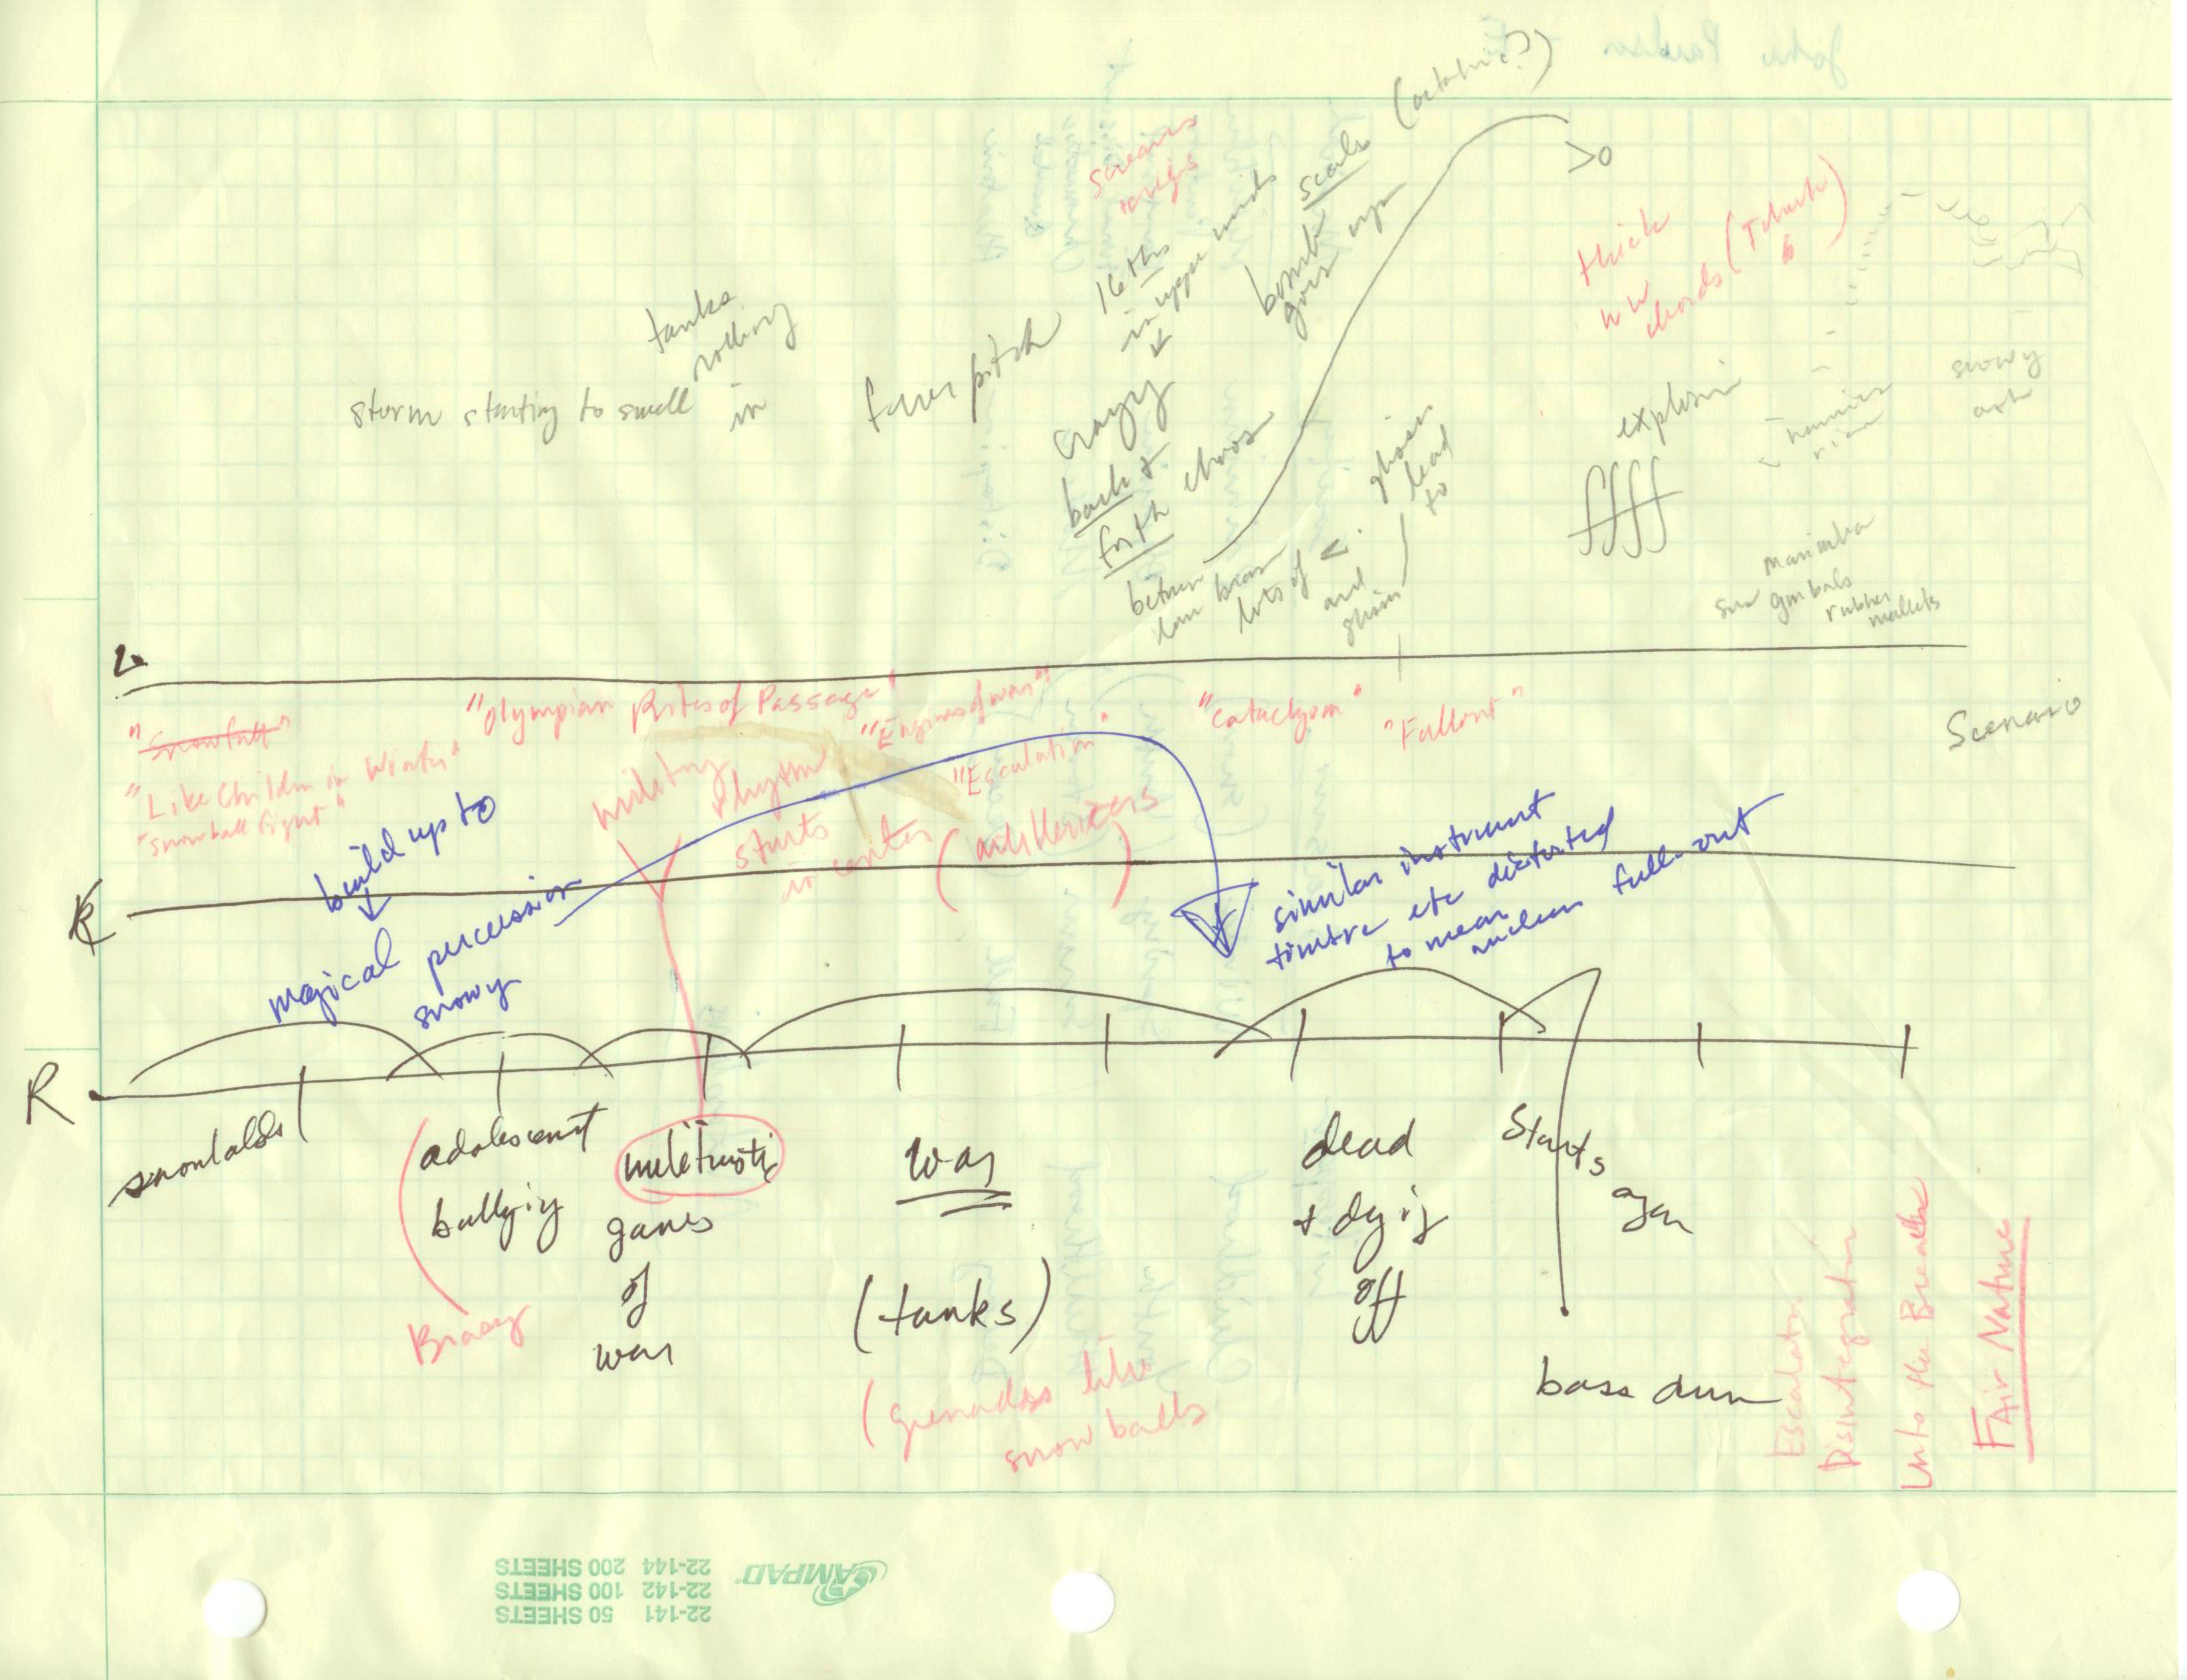 (octatonic?)
screams
scale
16ths
in upper winds
bomb
goes up
>0
thick
WW
chords (Tchaik
6)
tanks
rolling
in
storm starting to swell
fever pitch
crazy
back &
forth chaos
between
low brass
lots of <
and
lead
to
explosion
ffff
snowy
ash
marimba
rubber
mallets
L
"Snowfall"
"Like Children in Winter"
"snowball fight"
"Olympian Rites of Passage"
"Engines of war"
"Escalation"
"Cataclysm"
"Fallout"
Scenario
military
rhythm
starts
in center
(artilleries)
build up to
magical percussion
snowy
similar instrument
timbre etc distorted
to mean
nuclear full-out
R
snowballs
adolescent
bullying
Brassy
militaristic
games
of
war
war
(tanks)
(grenades like
snowballs
dead
+ dying
off
starts
again
bass drum
Escalation
Disintegration
Unto the Breathe
FAir Nature
AMPAD
22-141 50 SHEETS
22-142 100 SHEETS
22-144 200 SHEETS